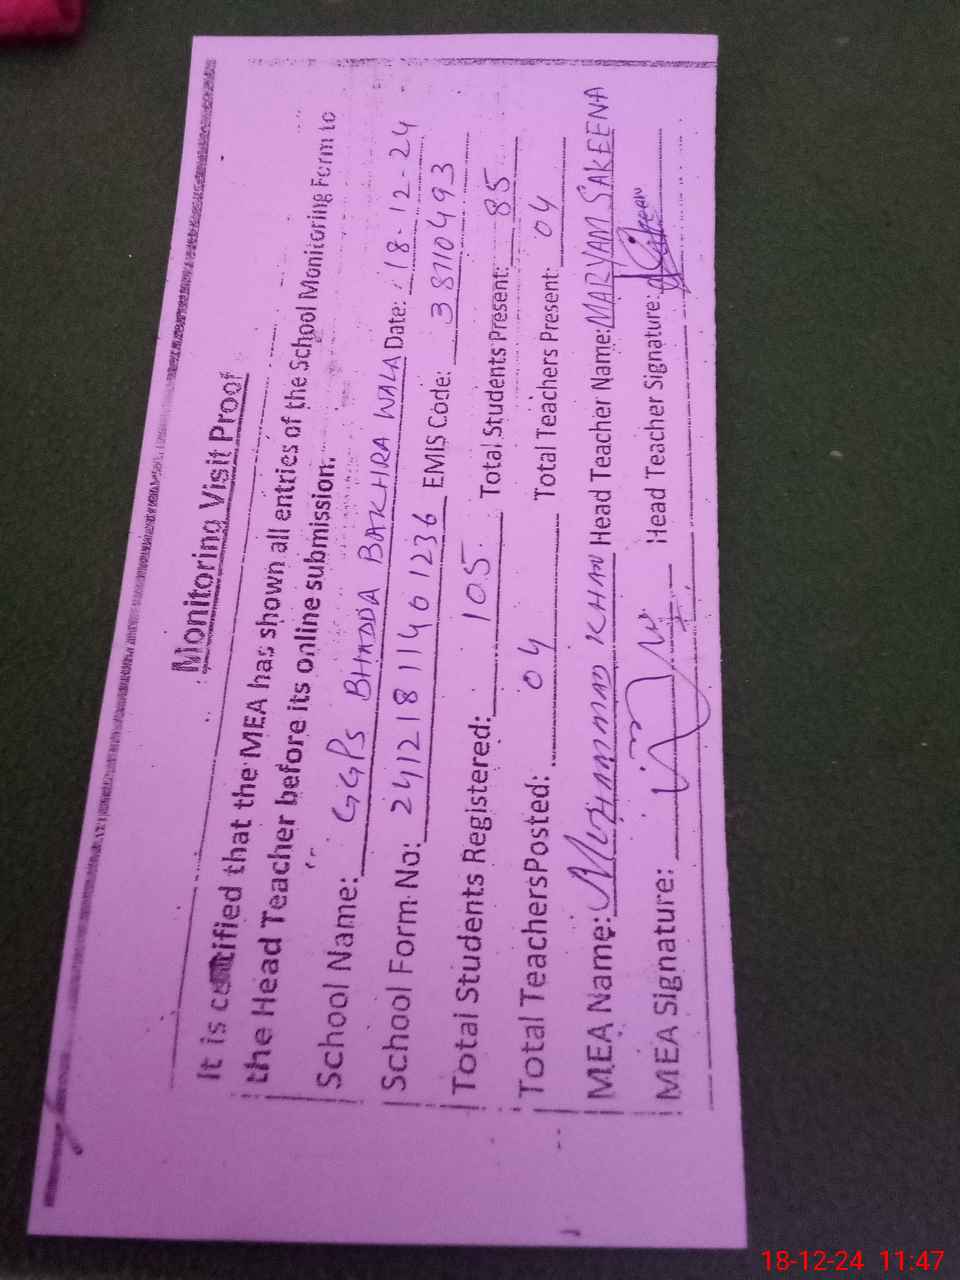 Monitoring Visit Proof
It is certified that the MEA has shown all entries of the School Monitoring Form to
the Head Teacher before its online submission.
School Name: GGPS BHADDA BAKHRA WALA Date: 18-12-24
School Form No: 241218114601236 EMIS Code: 38110493
Total Students Registered: 105 Total Students Present: 85
Total Teachers Posted: 04 Total Teachers Present: 04
MEA Name: MUHAMMAD KHAN Head Teacher Name: MARYAM SAKEENA
MEA Signature: Head Teacher Signature:
18-12-24 11:47